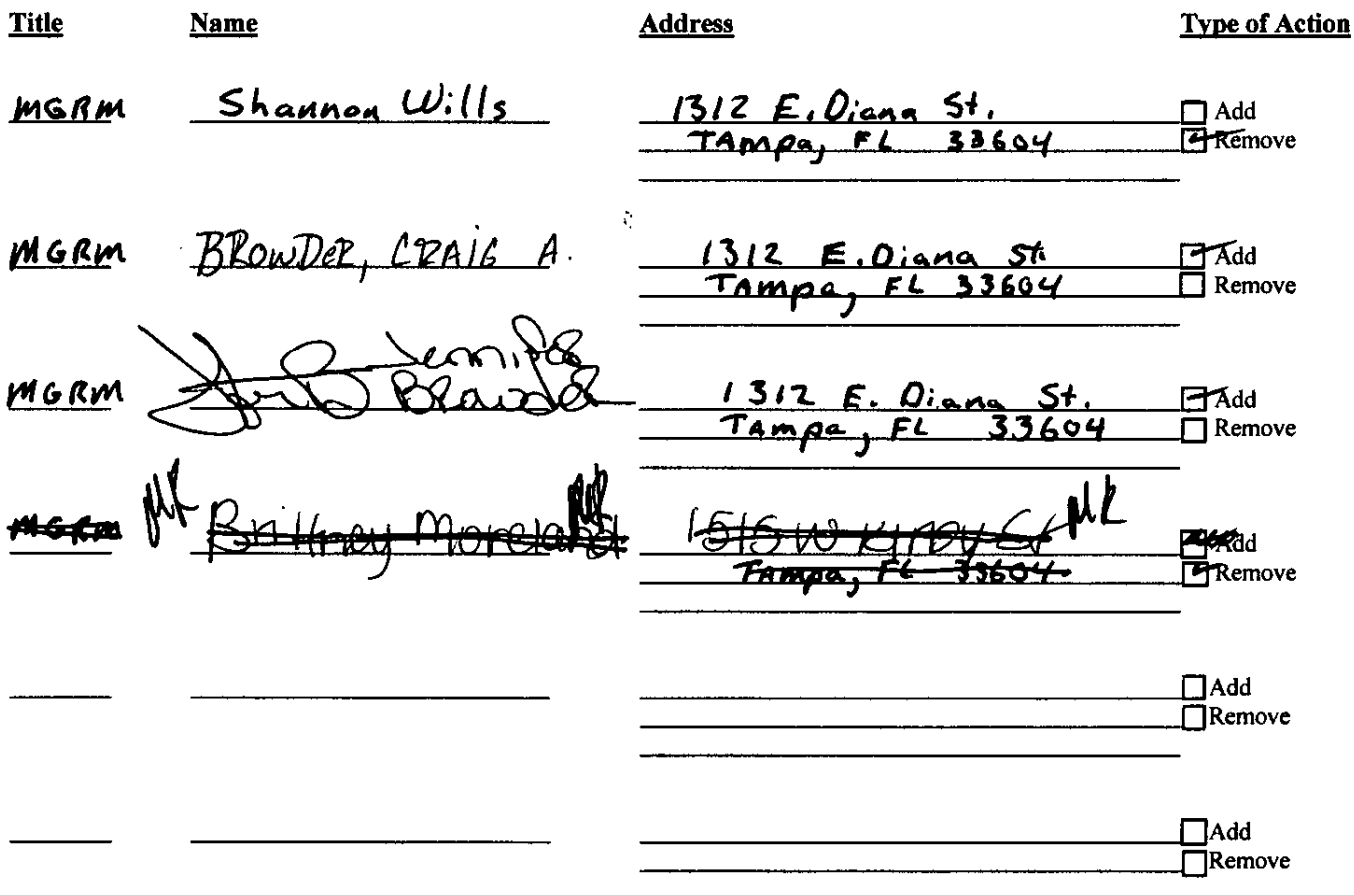 Title Name Address Type of Action
MGRM Shannon Wills 1312 E. Diana St. Add
TAmpa, FL 33604 Remove
MGRM BROWDER, CRAIG A. 1312 E. Diana St. Add
TAmpa, FL 33604 Remove
Jennifer
MGRM Browder 1312 E. Diana St. Add
TAmpa, FL 33604 Remove
MGRM Brittney Moreland 1515 W Add
TAmpa, FL 33604 Remove
Add
Remove
Add
Remove